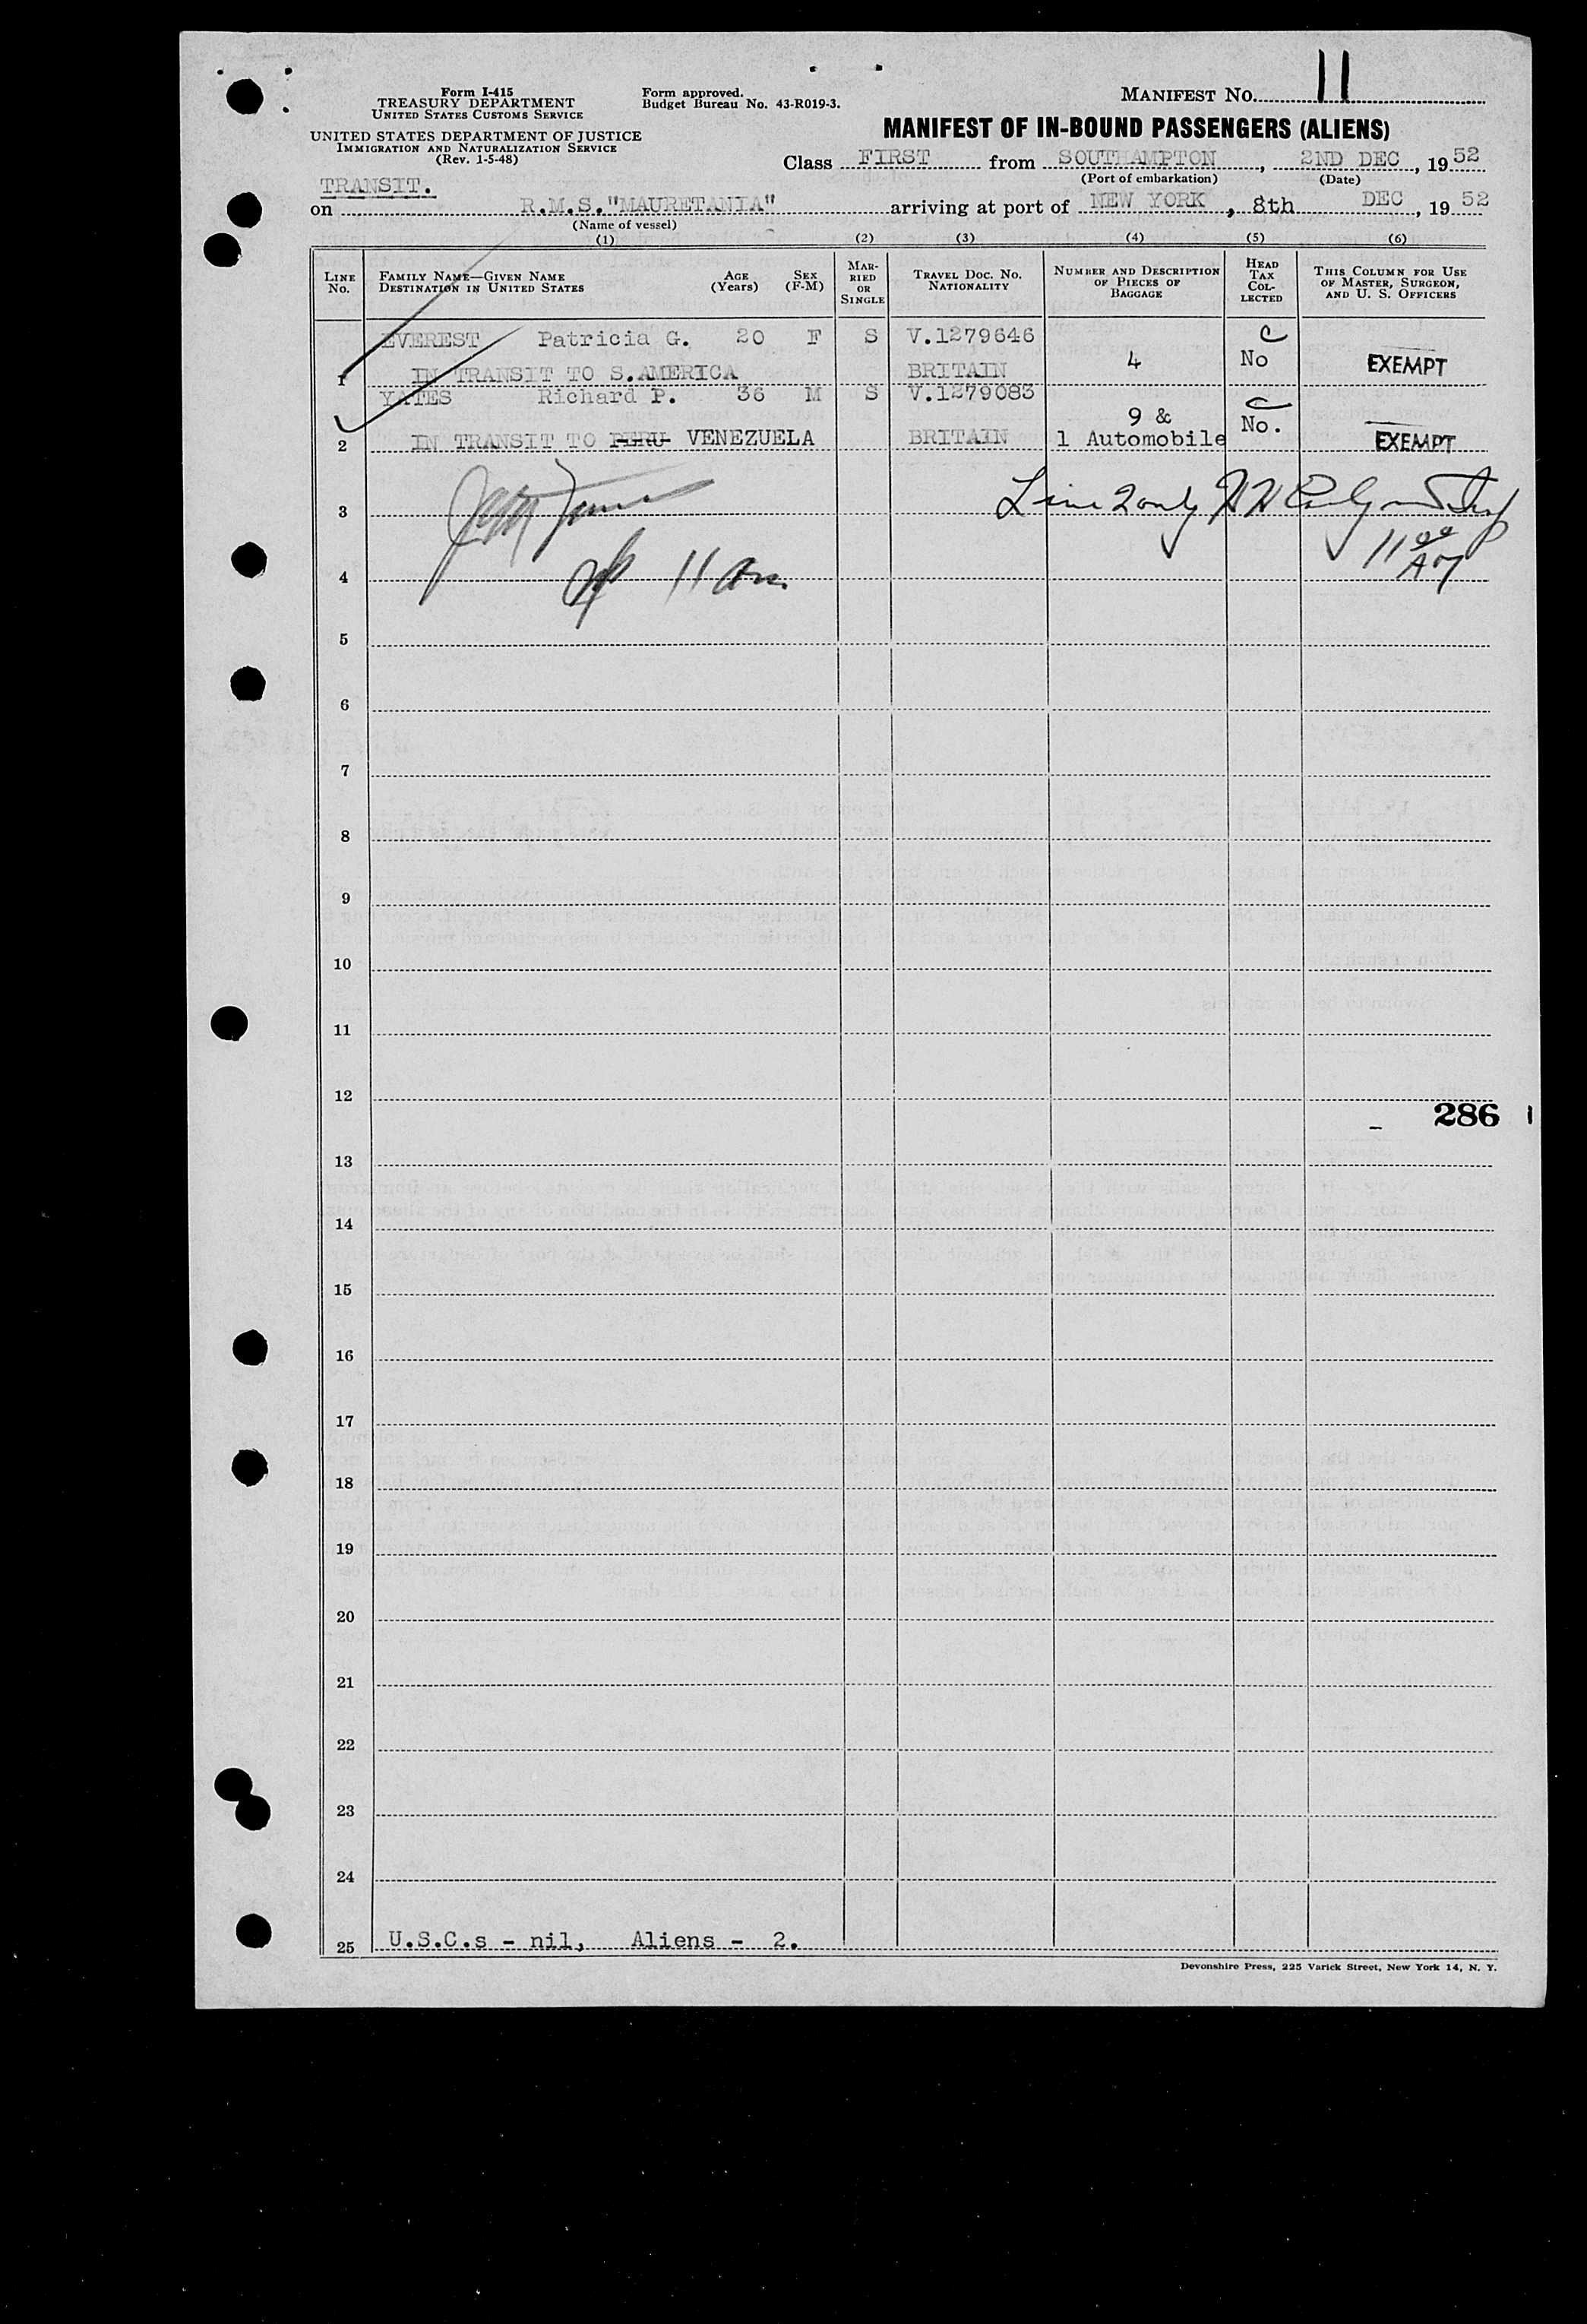 Form I-415
TREASURY DEPARTMENT
UNITED STATES CUSTOMS SERVICE
UNITED STATES DEPARTMENT OF JUSTICE
IMMIGRATION AND NATURALIZATION SERVICE
(Rev. 1-5-48)
Form approved.
Budget Bureau No. 43-R019-3.
MANIFEST NO. 11
MANIFEST OF IN-BOUND PASSENGERS (ALIENS)
Class FIRST from SOUTHAMPTON, 2ND DEC, 1952
(Port of embarkation) (Date)
TRANSIT.
on R.M.S."MAURETANIA" arriving at port of NEW YORK, 8th DEC, 1952
(Name of vessel)
(1) (2) (3) (4) (5) (6)
LINE No. FAMILY NAME—GIVEN NAME DESTINATION IN UNITED STATES AGE (Years) SEX (F-M) MARRIED OR SINGLE TRAVEL DOC. NO. NATIONALITY NUMBER AND DESCRIPTION OF PIECES OF BAGGAGE HEAD TAX COLLECTED THIS COLUMN FOR USE OF MASTER, SURGEON, AND U. S. OFFICERS
EVEREST Patricia G. 20 F S V.1279646 C
1 IN TRANSIT TO S.AMERICA BRITAIN 4 No EXEMPT
YATES Richard P. 36 M S V.1279083 C
9 & No.
2 IN TRANSIT TO PERU VENEZUELA BRITAIN 1 Automobile EXEMPT
Line 2 only
3
11 00 AM
4 11 am
5
6
7
8
9
10
11
12
286
13
14
15
16
17
18
19
20
21
22
23
24
25 U.S.C.s - nil, Aliens - 2.
Devonshire Press, 225 Varick Street, New York 14, N. Y.